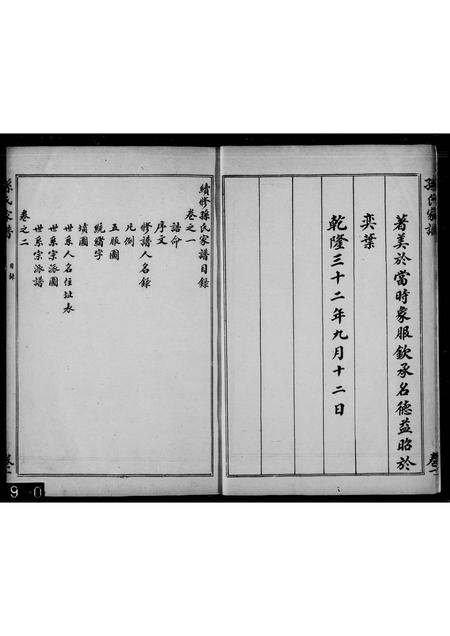 著美於當時象服欽承名德益昭於
奕葉
乾隆三十二年九月十二日
續修孫氏家譜目錄
卷之一
誥命
序文
修譜人名錄
凡例
五服圖
統緒字
墳圖
世系人名住址表
世系宗派圖
世系宗派譜
卷之二
孫氏家譜
目錄
9 0